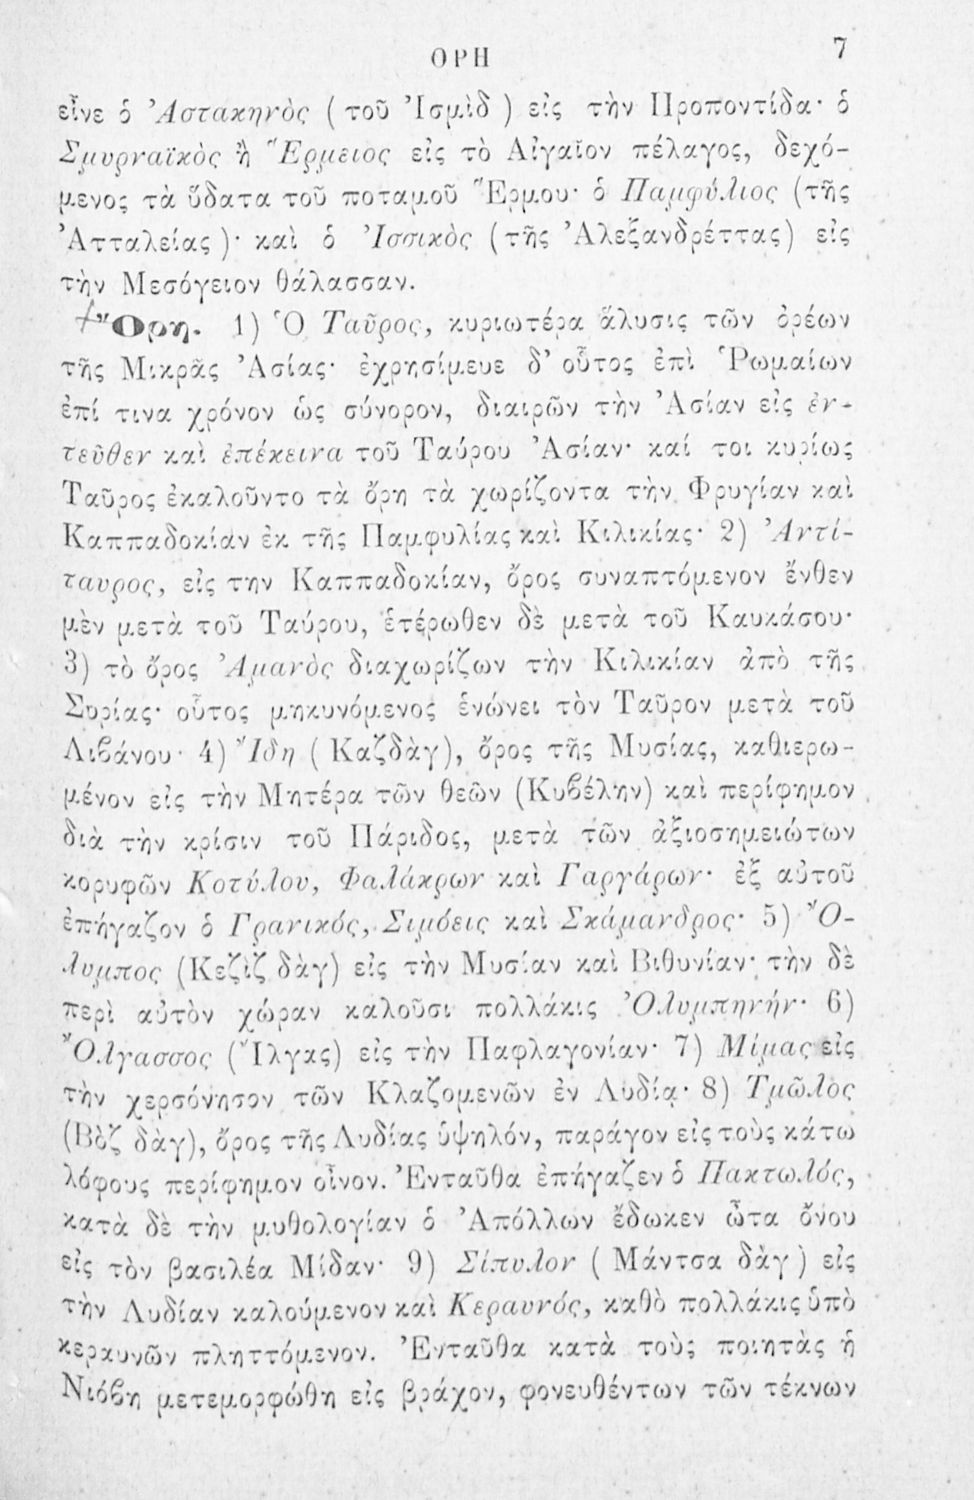 ΟΡΗ 7
εἶνε ὁ Ἀστακηνὸς ( τοῦ Ἰσμὶδ ) εἰς τὴν Προποντίδα· ὁ
Σμυρναϊκὸς ἢ Ἕρμειος εἰς τὸ Αἰγαῖον πέλαγος, δεχό-
μενος τὰ ὕδατα τοῦ ποταμοῦ Ἕρμου· ὁ Παμφύλιος (τῆς
Ἀτταλείας)· καὶ ὁ Ἰσσικὸς (τῆς Ἀλεξανδρέττας) εἰς
τὴν Μεσόγειον θάλασσαν.
Ὄρη. 1) Ὁ Ταῦρος, κυριωτέρα ἅλυσις τῶν ὀρέων
τῆς Μικρᾶς Ἀσίας· ἐχρησίμευε δ' οὗτος ἐπὶ Ῥωμαίων
ἐπί τινα χρόνον ὡς σύνορον, διαιρῶν τὴν Ἀσίαν εἰς ἐν-
τεῦθεν καὶ ἐπέκεινα τοῦ Ταύρου Ἀσίαν· καί τοι κυρίως
Ταῦρος ἐκαλοῦντο τὰ ὄρη τὰ χωρίζοντα τὴν Φρυγίαν καὶ
Καππαδοκίαν ἐκ τῆς Παμφυλίας καὶ Κιλικίας· 2) Ἀντί-
ταυρος, εἰς την Καππαδοκίαν, ὄρος συναπτόμενον ἔνθεν
μὲν μετὰ τοῦ Ταύρου, ἑτέρωθεν δὲ μετὰ τοῦ Καυκάσου·
3) τὸ ὄρος Ἀμανὸς διαχωρίζων τὴν Κιλικίαν ἀπὸ τῆς
Συρίας· οὗτος μηκυνόμενος ἑνώνει τὸν Ταῦρον μετὰ τοῦ
Λιβάνου· 4) Ἴδη ( Καζδὰγ), ὄρος τῆς Μυσίας, καθιερω-
μένον εἰς τὴν Μητέρα τῶν θεῶν (Κυβέλην) καὶ περίφημον
διὰ τὴν κρίσιν τοῦ Πάριδος, μετὰ τῶν ἀξιοσημειώτων
κορυφῶν Κοτύλου, Φαλάκρων καὶ Γαργάρων· ἐξ αὐτοῦ
ἐπήγαζον ὁ Γρανικός, Σιμόεις καὶ Σκάμανδρος· 5) Ὄ-
λυμπος (Κεζὶζ δὰγ) εἰς τὴν Μυσίαν καὶ Βιθυνίαν· τὴν δὲ
περὶ αὐτὸν χώραν καλοῦσι πολλάκις Ὀλυμπηνήν· 6)
Ὄλγασσος (Ἴλγας) εἰς τὴν Παφλαγονίαν· 7) Μίμας εἰς
τὴν χερσόνησον τῶν Κλαζομενῶν ἐν Λυδίᾳ· 8) Τμῶλος
(Βὸζ δὰγ), ὄρος τῆς Λυδίας ὑψηλόν, παράγον εἰς τοὺς κάτω
λόφους περίφημον οἶνον. Ἐνταῦθα ἐπήγαζεν ὁ Πακτωλός,
κατὰ δὲ τὴν μυθολογίαν ὁ Ἀπόλλων ἔδωκεν ὦτα ὄνου
εἰς τὸν βασιλέα Μίδαν· 9) Σίπυλον ( Μάντσα δὰγ) εἰς
τὴν Λυδίαν καλούμενον καὶ Κεραυνός, καθὸ πολλάκις ὑπὸ
κεραυνῶν πληττόμενον. Ἐνταῦθα κατὰ τοὺς ποιητὰς ἡ
Νιόβη μετεμορφώθη εἰς βράχον, φονευθέντων τῶν τέκνων